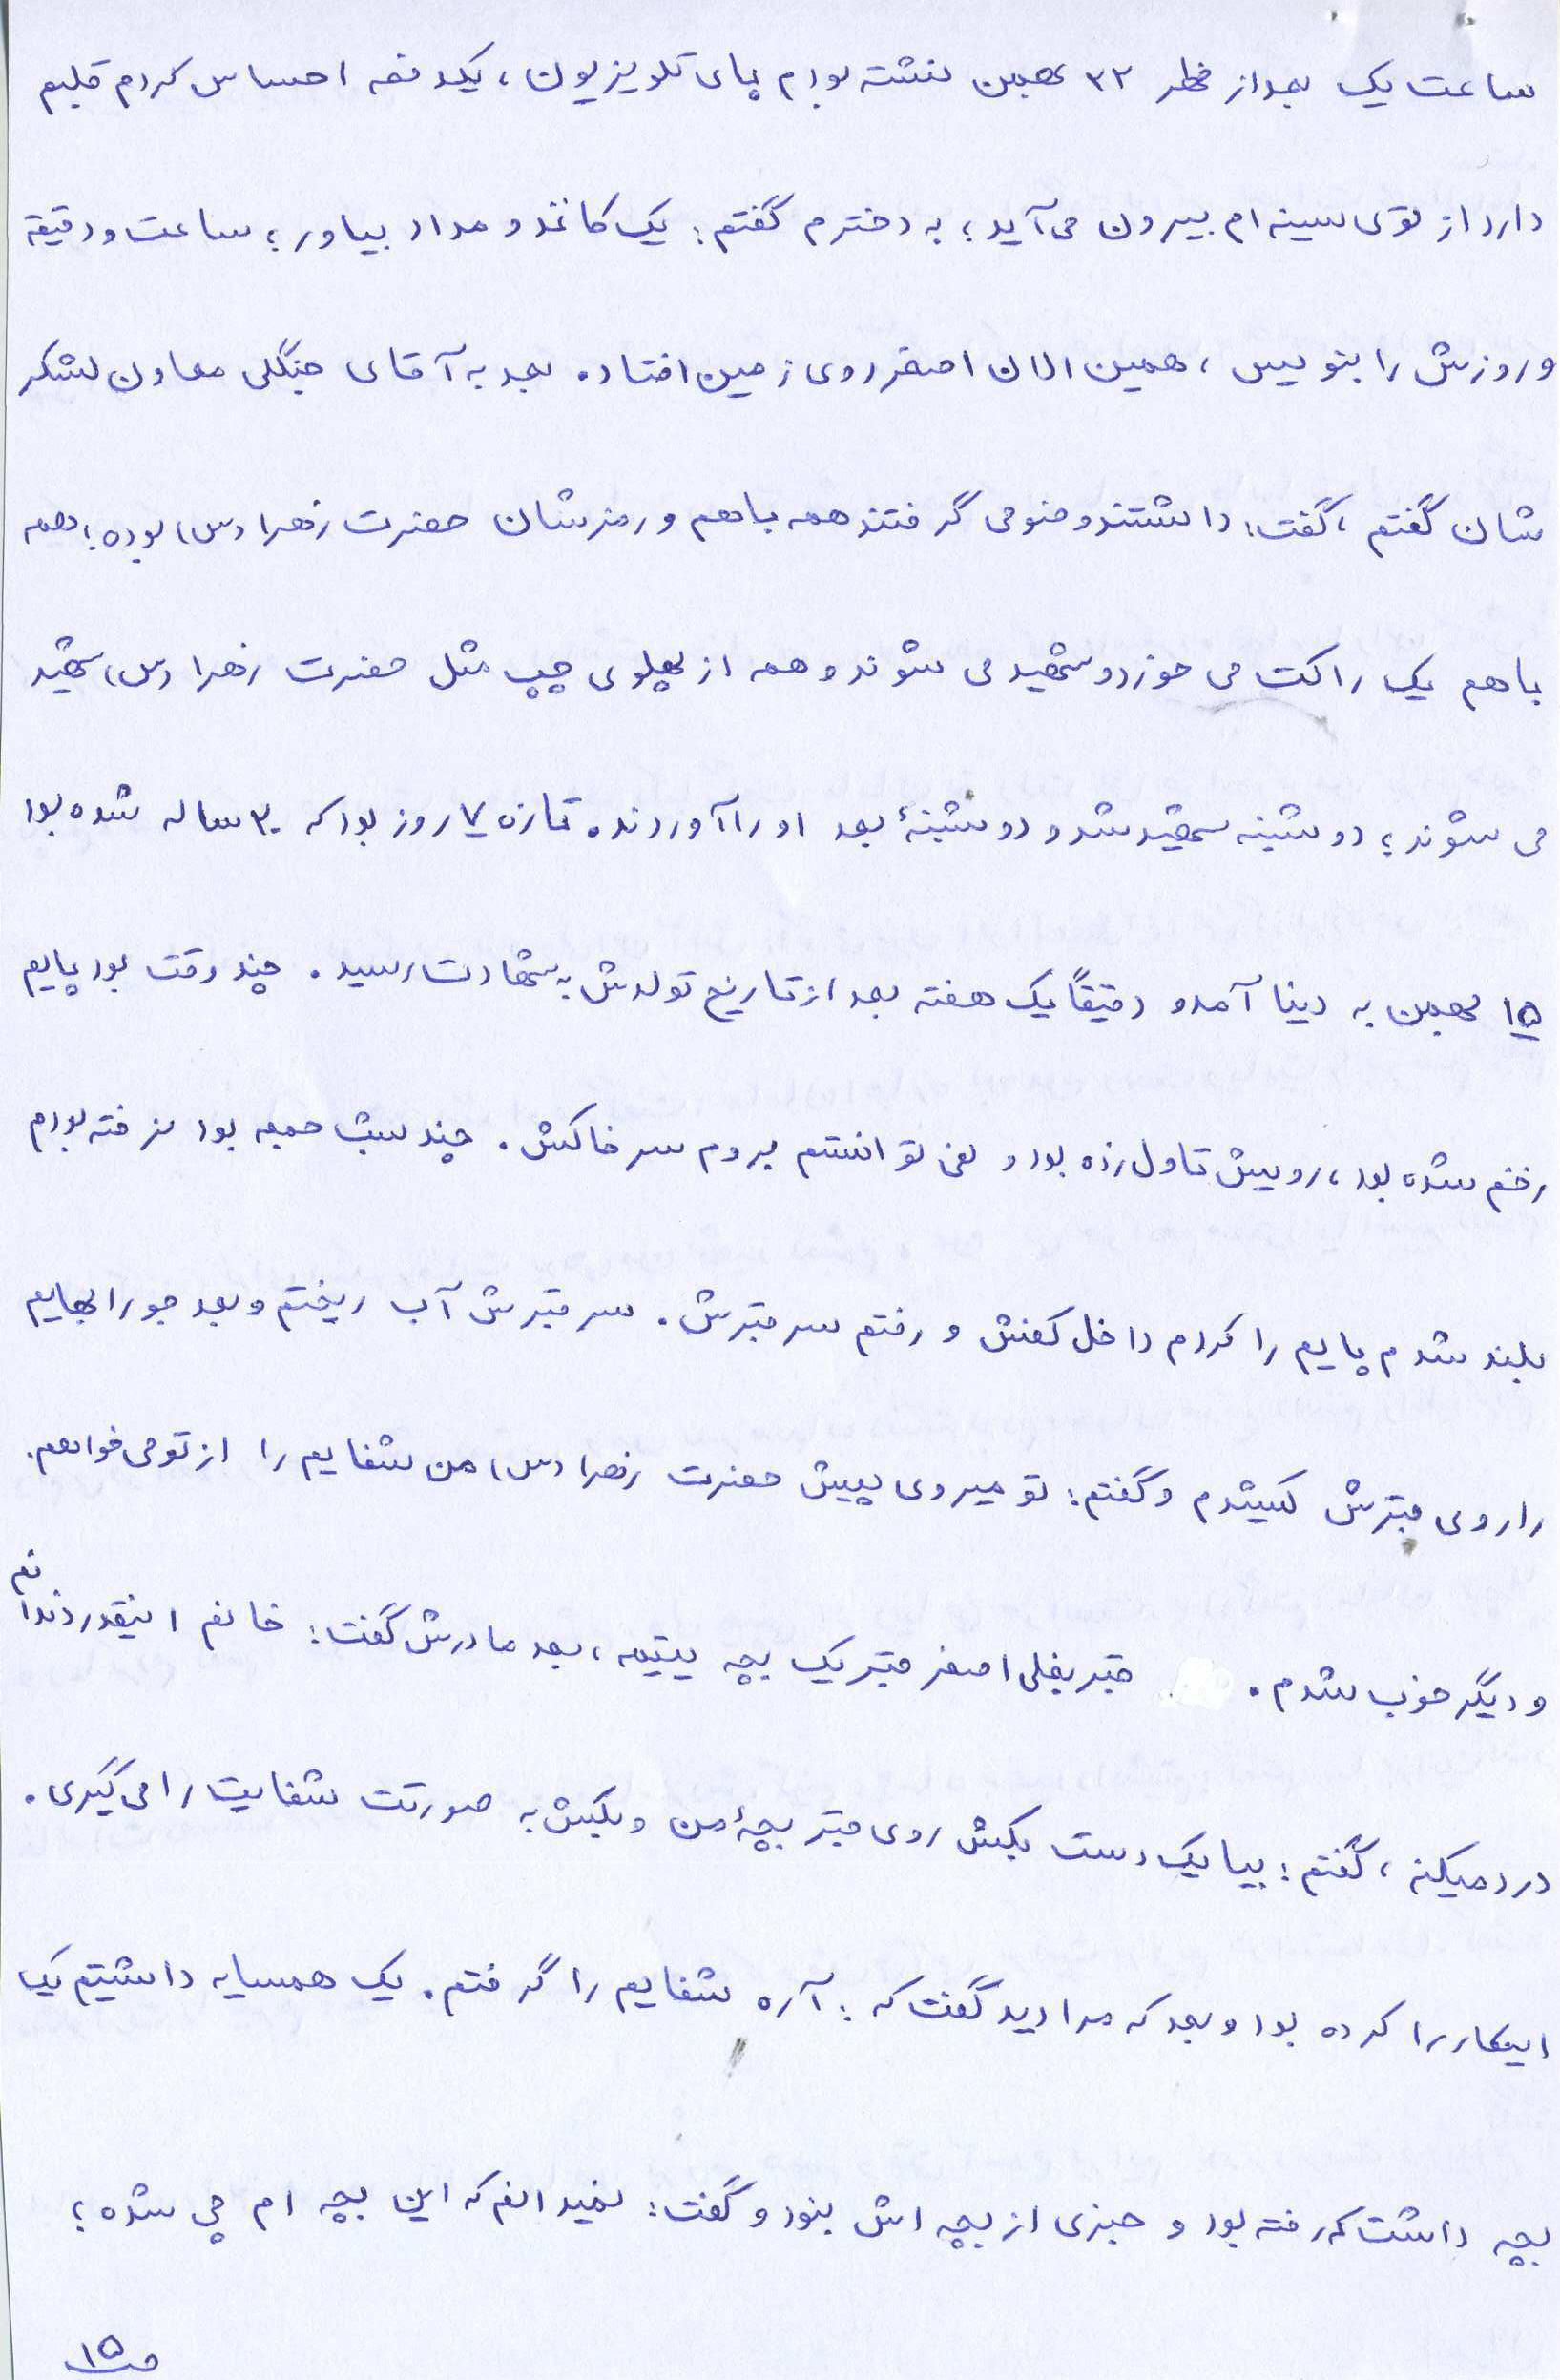 ساعت یک بعد از ظهر ۲۲ بهمن نشسته بودم پای تلویزیون، یکدفعه احساس کردم قلبم
دارد از توی سینه ام بیرون می آید؛ به دخترم گفتم: یک کاغذ و مداد بیاور؛ ساعت و دقیقه
و روزش را بنویس، همین الان اصغر روی زمین افتاد. بعد به آقای جنگلی معاون لشکر
شان گفتم، گفت: داشتند وضو می گرفتند همه باهم و رمزشان حضرت زهرا (س) بوده؛ همه
باهم یک راکت می خورد و شهید می شوند و همه از پهلوی چپ مثل حضرت زهرا (س) شهید
می شوند؛ دوشنبه شهید شد و دوشنبهٔ بعد او را آوردند. تازه ۷ روز بود که ۳۰ ساله شده بود
۱۵ بهمن به دینا آمد و دقیقاً یک هفته بعد از تاریخ تولدش به شهادت رسید. چند وقت بود پایم
زخم شده بود، رویش تاول زده بود و نمی توانستم بروم سر خاکش. چند شب جمعه بود نرفته بودم
بلند شدم پایم را کردم داخل کفش و رفتم سر قبرش. سر قبرش آب ریختم و بعد جورابهایم
را روی قبرش کشیدم و گفتم: تو میروی پیش حضرت زهرا (س) من شفایم را از تو می خواهم.
و دیگر خوب شدم. قبر بغلی اصغر قبر یک بچه یتیمه، بعد مادرش گفت: خانم اینقدر دندانم
درد میکنه، گفتم: بیا یک دست بکش روی قبر بچهٔ من و بکش به صورتت شفایت را می گیری.
اینکار را کرده بود و بعد که مرا دید گفت که: آره شفایم را گرفتم. یک همسایه داشتیم یک
بچه داشت که رفته بود و خبری از بچه اش بنود و گفت: نمیدانم که این بچه ام چی شده؛
ص ۱۵